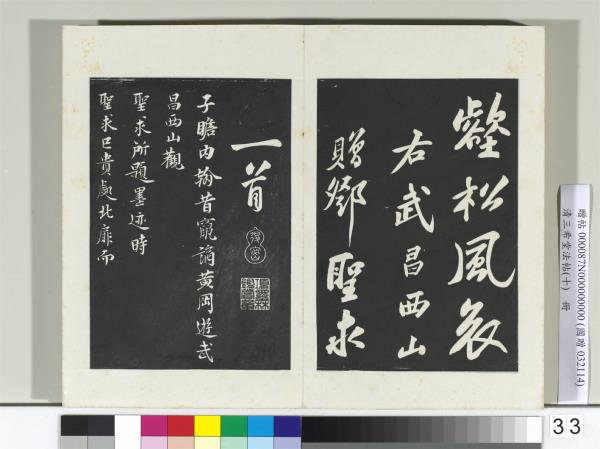 壑松風哀
右武昌西山
贈鄧聖求
一首
子瞻內翰昔竄謫黃岡遊武
昌西山觀
聖求所題墨迹時
聖求已貴處北扉而
贈帖 000087N000000000 (國贈 032114)
清三希堂法帖(十) 冊
33